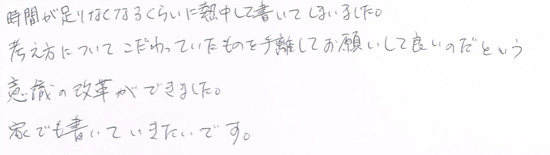 時間が足りなくなるくらいに熱中して書いてしまいました。
考え方について こだわっていたものを手離してお願いして良いのだという
意識の改革ができました。
家でも書いていきたいです。